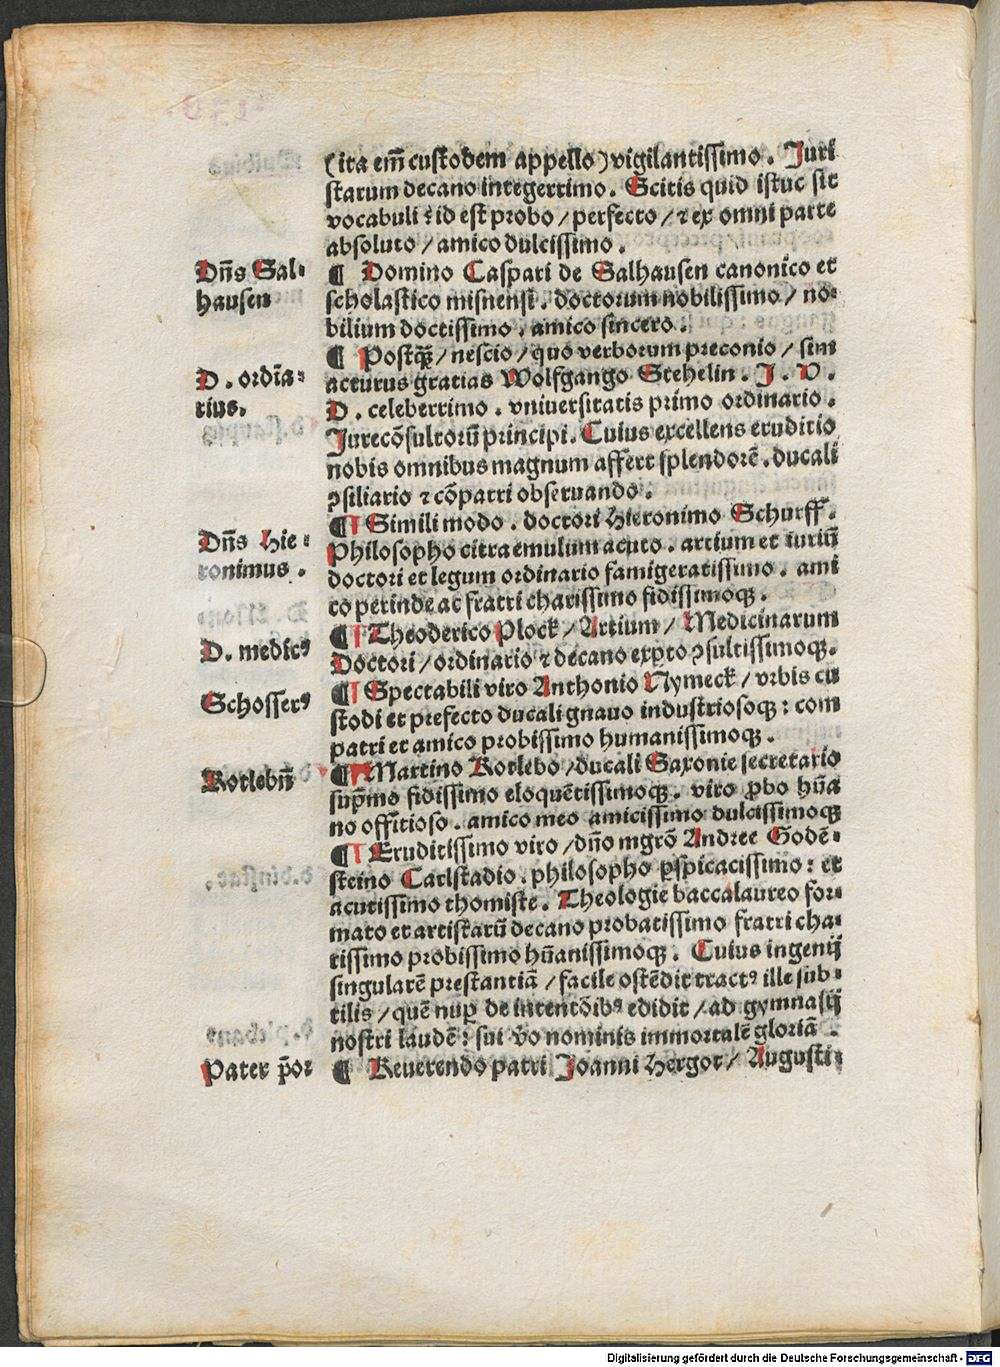 (ita em̄ custodem appello) vigilantissimo. Juri
starum decano integerrimo. Scitis quid istuc sit
vocabuli? id est probo / perfecto / ⁊ ex omni parte
absoluto / amico dulcissimo.
Dn̄s Sal-
hausen
¶ Domino Caspari de Salhausen canonico et
scholastico misnensi. doctorum nobilissimo / no-
bilium doctissimo. amico sincero.
¶ Postq̄ꝫ / nescio / quo verborum preconio / sim
D. ordīa-
rius.
acturus gratias Wolfgango Stehelin. J. V.
D. celeberrimo. vniuersitatis primo ordinario.
Jurecōsultorū principi. Cuius excellens eruditio
nobis omnibus magnum affert splendorē. ducali
ꝯsiliario ⁊ cōpatri obseruando.
¶ Simili modo. doctori Hieronimo Schurff.
Dn̄s Hie-
ronimus.
Philosopho citra emulum acuto. artium et iuriū
doctori et legum ordinario famigeratissimo. ami
co perinde ac fratri charissimo fidissimoqꝫ.
¶ Theoderico Plock / Artium / Medicinarum
D. medicꝰ
Doctori / ordinario ⁊ decano exꝑto ꝯsultissimoqꝫ.
Schosserꝰ
¶ Spectabili viro Anthonio Nymeck / vrbis cu
stodi et prefecto ducali gnauo industriosoqꝫ: com
patri et amico probissimo humanissimoqꝫ.
Kotlebn̄
¶ Martino Kotlebo / ducali Saxonie secretario
sup̄mo fidissimo eloquētissimoqꝫ. viro ꝓbo hūa
no offitioso. amico meo amicissimo dulcissimoqꝫ
¶ Eruditissimo viro / dn̄o mgrō Andree Godē-
steino Carlstadio. philosopho ꝑspicacissimo: et
acutissimo thomiste. Theologie baccalaureo for-
mato et artistarū decano probatissimo fratri cha-
rissimo probissimo hūanissimoqꝫ. Cuius ingenij
singularē prestantiā / facile ostēdit tractꝰ ille sub-
tilis / quē nuꝑ de intentōibꝰ edidit / ad gymnasij
nostri laudē: sui v̄o nominis immortalē gloriā.
Pater p̄or
¶ Reuerendo patri Joanni Hergot / Augusti-
Digitalisierung gefördert durch die Deutsche Forschungsgemeinschaft - DFG